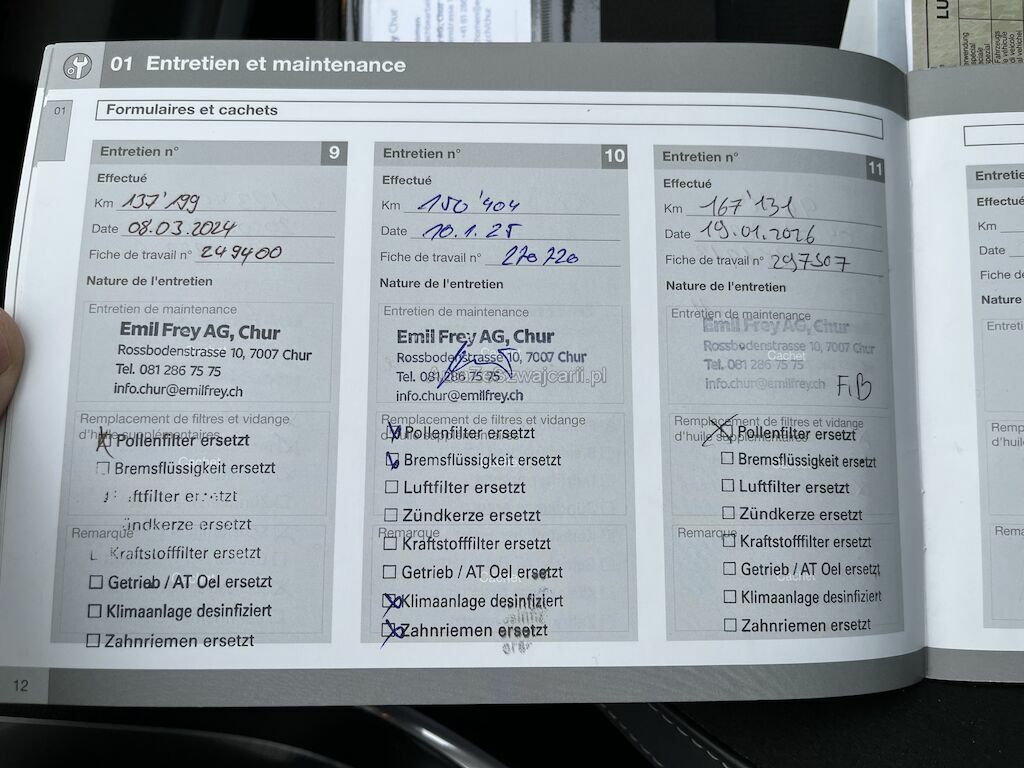 01 Entretien et maintenance
01
Formulaires et cachets
Entretien n° 9
Effectué
Km 137'199
Date 08.03.2024
Fiche de travail n° 249400
Nature de l'entretien
Entretien de maintenance
Emil Frey AG, Chur
Rossbodenstrasse 10, 7007 Chur
Tel. 081 286 75 75
info.chur@emilfrey.ch
Remplacement de filtres et vidange
d'huile supplémentaires
Pollenfilter ersetzt
Bremsflüssigkeit ersetzt
Luftfilter ersetzt
Zündkerze ersetzt
Remarque
Kraftstofffilter ersetzt
Getrieb / AT Oel ersetzt
Klimaanlage desinfiziert
Zahnriemen ersetzt
Entretien n° 10
Effectué
Km 150'404
Date 10.1.25
Fiche de travail n° 270720
Nature de l'entretien
Entretien de maintenance
Emil Frey AG, Chur
Rossbodenstrasse 10, 7007 Chur
Tel. 081 286 75 75
info.chur@emilfrey.ch
Remplacement de filtres et vidange
d'huile supplémentaires
Pollenfilter ersetzt
Bremsflüssigkeit ersetzt
Luftfilter ersetzt
Zündkerze ersetzt
Remarque
Kraftstofffilter ersetzt
Getrieb / AT Oel ersetzt
Klimaanlage desinfiziert
Zahnriemen ersetzt
Entretien n° 11
Effectué
Km 167'131
Date 19.01.2026
Fiche de travail n° 297507
Nature de l'entretien
Entretien de maintenance
Emil Frey AG, Chur
Rossbodenstrasse 10, 7007 Chur
Cachet
Tel. 081 286 75 75
info.chur@emilfrey.ch
FiB
Remplacement de filtres et vidange
d'huile supplémentaires
Pollenfilter ersetzt
Bremsflüssigkeit ersetzt
Cachet
Luftfilter ersetzt
Zündkerze ersetzt
Remarque
Kraftstofffilter ersetzt
Getrieb / AT Oel ersetzt
Cachet
Klimaanlage desinfiziert
Zahnriemen ersetzt
12
Effectué
Km
Date
Nature
LU
Chur